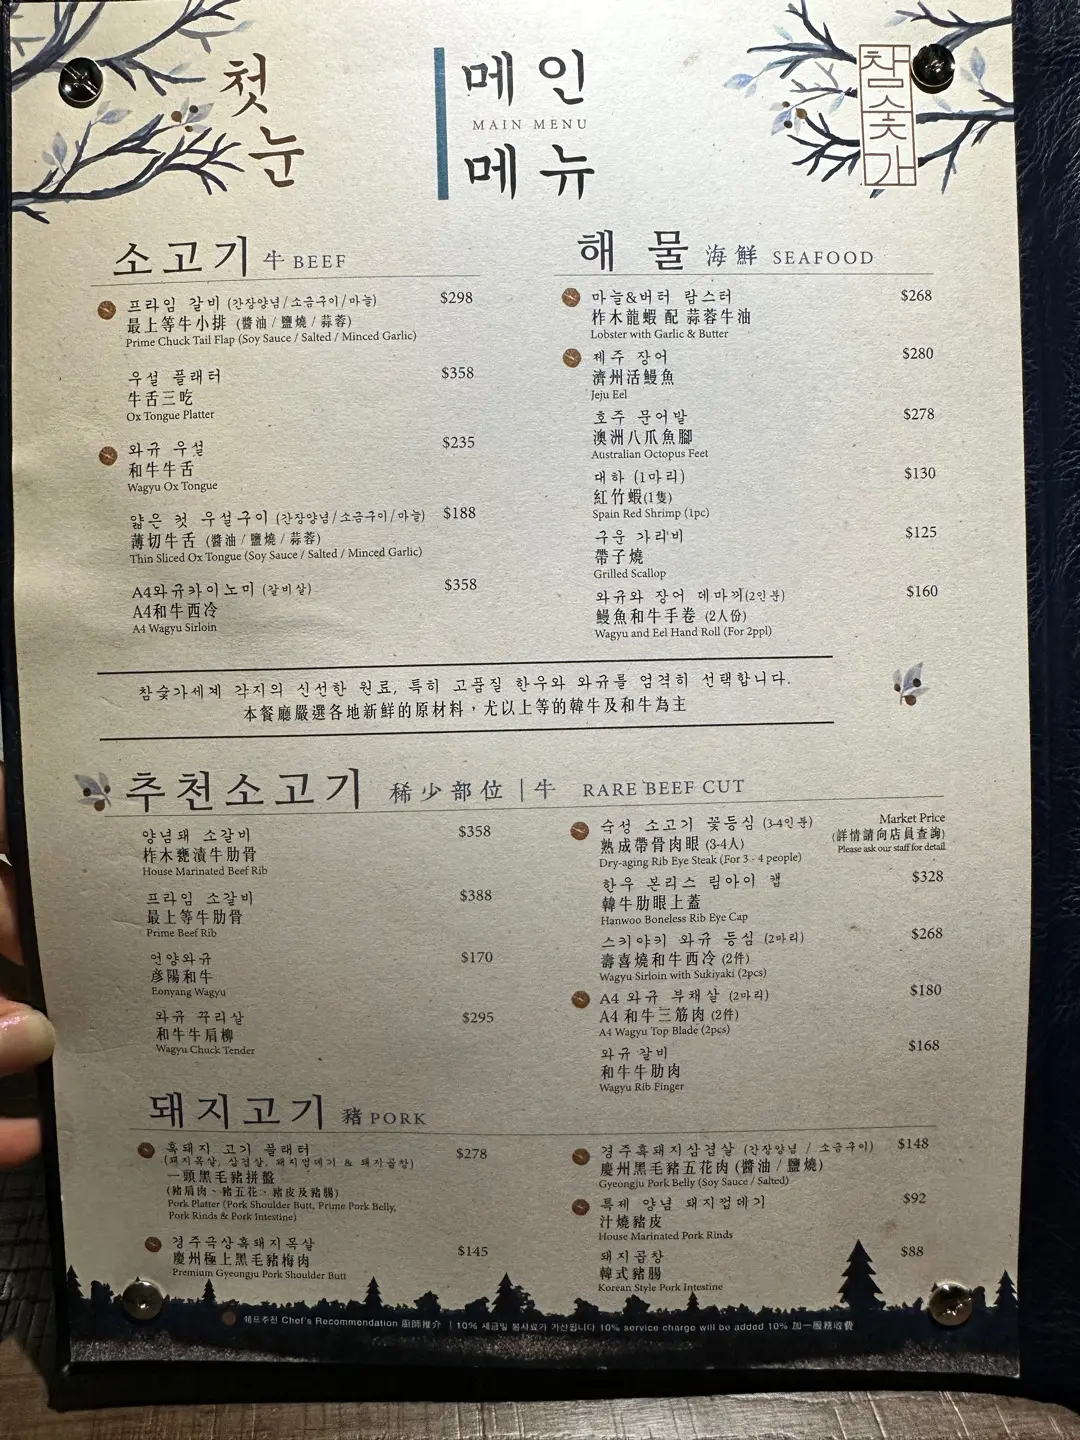 첫눈
메인
MAIN MENU
메뉴
참숯가
소고기 牛 BEEF
프라임 갈비 (간장양념/소금구이/마늘) $298
最上等牛小排 (醬油 / 鹽燒 / 蒜蓉)
Prime Chuck Tail Flap (Soy Sauce / Salted / Minced Garlic)
우설 플래터 $358
牛舌三吃
Ox Tongue Platter
와규 우설 $235
和牛牛舌
Wagyu Ox Tongue
얇은 컷 우설구이 (간장양념/소금구이/마늘) $188
薄切牛舌 (醬油 / 鹽燒 / 蒜蓉)
Thin Sliced Ox Tongue (Soy Sauce / Salted / Minced Garlic)
A4와규카이노미 (갈비살) $358
A4和牛西冷
A4 Wagyu Sirloin
해물 海鮮 SEAFOOD
마늘&버터 랍스터 $268
柞木龍蝦 配 蒜蓉牛油
Lobster with Garlic & Butter
제주 장어 $280
濟州活鰻魚
Jeju Eel
호주 문어발 $278
澳洲八爪魚腳
Australian Octopus Feet
대하 (1마리) $130
紅竹蝦(1隻)
Spain Red Shrimp (1pc)
구운 가리비 $125
帶子燒
Grilled Scallop
와규와 장어 데마끼(2인분) $160
鰻魚和牛手卷 (2人份)
Wagyu and Eel Hand Roll (For 2ppl)
참숯가세계 각지의 신선한 원료, 특히 고품질 한우와 와규를 엄격히 선택합니다.
本餐廳嚴選各地新鮮的原材料，尤以上等的韓牛及和牛為主
추천소고기 稀少部位 | 牛 RARE BEEF CUT
양념돼 소갈비 $358
柞木甕漬牛肋骨
House Marinated Beef Rib
프라임 소갈비 $388
最上等牛肋骨
Prime Beef Rib
언양와규 $170
彦陽和牛
Eonyang Wagyu
와규 꾸리살 $295
和牛牛肩柳
Wagyu Chuck Tender
숙성 소고기 꽃등심 (3-4인분) Market Price
熟成帶骨肉眼 (3-4人) (詳情請向店員查詢)
Dry-aging Rib Eye Steak (For 3 - 4 people) Please ask our staff for detail
한우 본리스 립아이 캡 $328
韓牛肋眼上蓋
Hanwoo Boneless Rib Eye Cap
스키야키 와규 등심 (2마리) $268
壽喜燒和牛西冷 (2件)
Wagyu Sirloin with Sukiyaki (2pcs)
A4 와규 부채살 (2마리) $180
A4 和牛三筋肉 (2件)
A4 Wagyu Top Blade (2pcs)
와규 갈비 $168
和牛牛肋肉
Wagyu Rib Finger
돼지고기 豬 PORK
흑돼지 고기 플래터 $278
(돼지목살, 삼겹살, 돼지껍데기 & 돼지곱창)
一頭黑毛豬拼盤
(豬肩肉、豬五花、豬皮及豬腸)
Pork Platter (Pork Shoulder Butt, Prime Pork Belly,
Pork Rinds & Pork Intestine)
경주극상흑돼지목살 $145
慶州極上黑毛豬梅肉
Premium Gyeongju Pork Shoulder Butt
경주흑돼지삼겹살 (간장양념 / 소금구이) $148
慶州黑毛豬五花肉 (醬油 / 鹽燒)
Gyeongju Pork Belly (Soy Sauce / Salted)
특제 양념 돼지껍데기 $92
汁燒豬皮
House Marinated Pork Rinds
돼지곱창 $88
韓式豬腸
Korean Style Pork Intestine
쉐프추천 Chef's Recommendation 廚師推介 | 10% 세금및 봉사료가 가산됩니다 10% service charge will be added 10% 加一服務收費